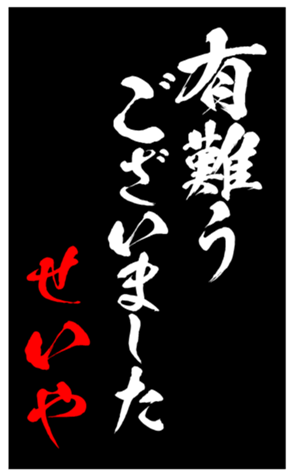 有難う
ございました
せいや